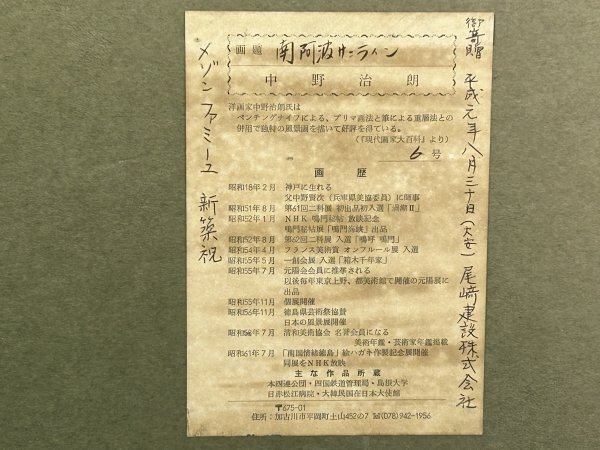 御寄贈 平成元年八月三十日(大安) 尾﨑建設株式会社
画題 南阿波サンライン
中野治朗
洋画家中野治朗氏は
ペンチングナイフによる、プリマ画法と筆による重層法との
併用で独特の風景画を描いて好評を得ている。
(『現代画家大百科』より)
6号
画歴
昭和18年2月 神戸に生れる
父中野賢次(兵庫県美協委員)に師事
昭和51年8月 第61回二科展 初出品初入選「渦潮Ⅱ」
昭和52年1月 NHK 鳴門秘帖 放映記念
鳴門秘帖展「鳴門海峡」出品
昭和52年8月 第62回二科展 入選「鳴呼 鳴門」
昭和54年4月 フランス美術賞 オンフルール展 入選
昭和55年5月 一創会展 入選「箱木千年家」
昭和55年7月 元陽会会員に推挙される
以後毎年東京上野、都美術館で開催の元陽展に
出品
昭和55年11月 個展開催
昭和56年11月 徳島県芸術祭協賛
日本の風景展開催
年7月 清和美術協会 名誉会員になる
美術年鑑・芸術家年鑑掲載
昭和61年7月 「南国情緒徳島」絵ハガキ作製記念展開催
同展をNHK放映
主な作品所蔵
本四連公団・四国鉄道管理局・島根大学
日赤松江病院・大韓民国在日本大使館
〒675-01
住所:加古川市平岡町土山452の7 ℡(078)942-1956
メゾンファミーユ 新築祝